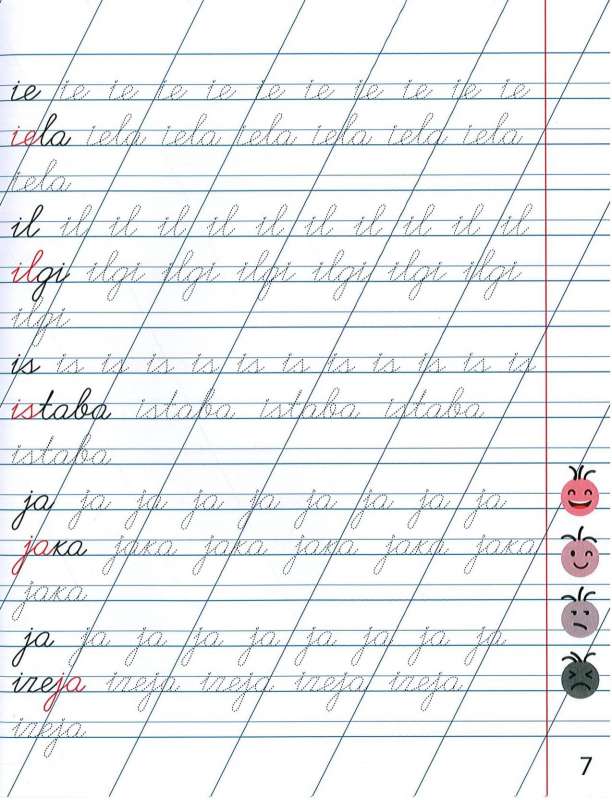 ie ie ie ie ie ie ie ie ie ie ie
iela iela iela iela iela iela iela
iela
il il il il il il il il il il il
ilgi ilgi ilgi ilgi ilgi ilgi ilgi
ilgi
is is is is is is is is is is is is
istaba istaba istaba istaba
istaba
ja ja ja ja ja ja ja ja ja
jaka jaka jaka jaka jaka jaka
jaka
ja ja ja ja ja ja ja ja ja
izeja izeja izeja izeja izeja
izeja
7